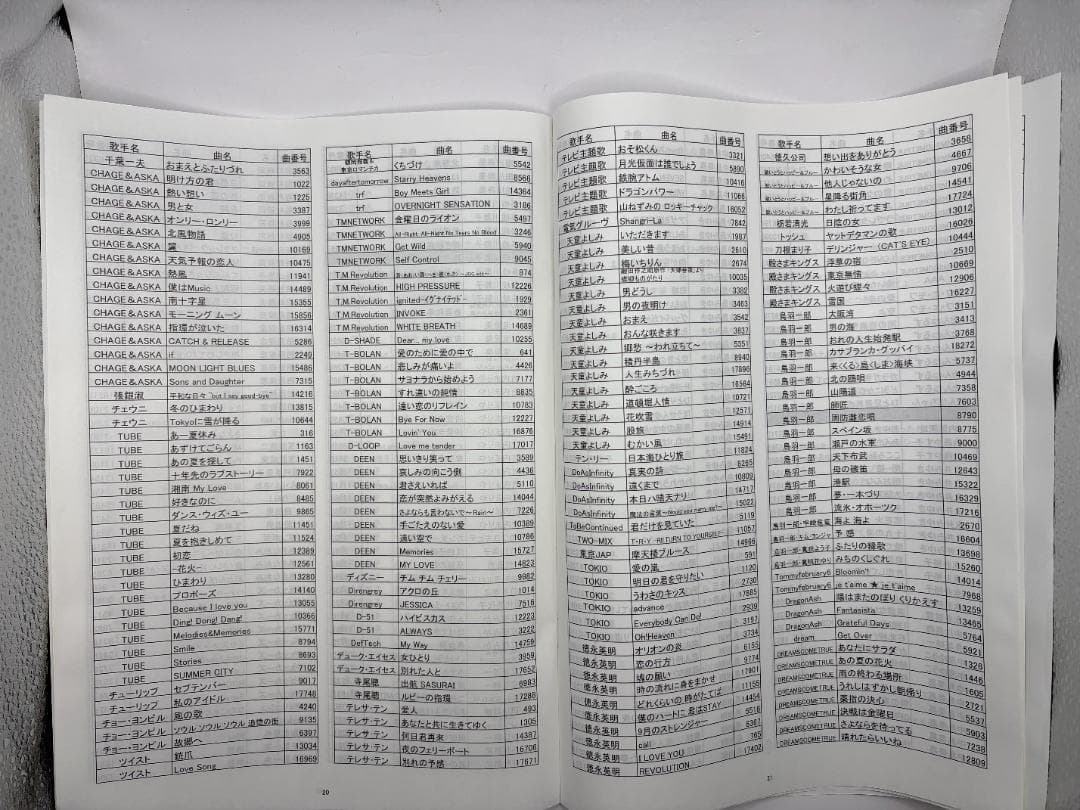 歌手名 曲名 曲番号
千葉一夫 おまえとふたりづれ 3563
CHAGE&ASKA 明け方の君 1022
CHAGE&ASKA 熱い想い 1225
CHAGE&ASKA 男と女 3387
CHAGE&ASKA オンリー・ロンリー 3999
CHAGE&ASKA 北風物語 4905
CHAGE&ASKA 翼 10169
CHAGE&ASKA 天気予報の恋人 10475
CHAGE&ASKA 熱風 11941
CHAGE&ASKA 僕はMusic 14489
CHAGE&ASKA 南十字星 15355
CHAGE&ASKA モーニング ムーン 15856
CHAGE&ASKA 指環が泣いた 16314
CHAGE&ASKA CATCH & RELEASE 5286
CHAGE&ASKA if 2249
CHAGE&ASKA MOON LIGHT BLUES 15486
CHAGE&ASKA Sons and Daughter 7315
張鎧淑 平和な日々 "but I say good-bye" 14216
チェウニ 冬のひまわり 13815
チェウニ Tokyoに雪が降る 10644
TUBE あー夏休み 316
TUBE あすけてごらん 1163
TUBE あの夏を探して 1451
TUBE 十年先のラブストーリー 7922
TUBE 湘南 My Love 8061
TUBE 好きなのに 8485
TUBE ダンス・ウィズ・ユー 9865
TUBE 夏だね 11451
TUBE 夏を抱きしめて 11524
TUBE 初恋 12389
TUBE 一花火- 12561
TUBE ひまわり 13280
TUBE プロポーズ 14140
TUBE Because I love you 13055
TUBE Ding! Dong! Dang! 10366
TUBE Melodies&Memories 15771
TUBE Smile 8794
TUBE Stories 8693
TUBE SUMMER CITY 7102
チューリップ セプテンバー 9017
チューリップ 私のアイドル 17748
チョー・ヨンピル 窓の歌 4240
チョー・ヨンピル ソウル ソウル ソウル 追憶の街 9135
チョー・ヨンピル 故郷へ 6397
ツイスト 銃爪 13034
ツイスト Love Song 16969
歌手名 曲名 曲番号
東京ロマンチカ くちづけ 5542
dayaftertomorrow Starry Heavens 8566
trf Boy Meets Girl 14364
trf OVERNIGHT SENSATION 3186
TMNETWORK 金曜日のライオン 5497
TMNETWORK All-Right All-Night No Tears No Blood 3246
TMNETWORK Get Wild 5940
TMNETWORK Self Control 9045
T.M.Revolution 974
T.M.Revolution HIGH PRESSURE 12226
T.M.Revolution ignited-イグナイテッド- 1929
T.M.Revolution INVOKE 2361
T.M.Revolution WHITE BREATH 14689
D-SHADE Dear... my love 10255
T-BOLAN 愛のために愛の中で 641
T-BOLAN 悲しみが痛いよ 4426
T-BOLAN サヨナラから始めよう 7177
T-BOLAN すれ違いの純情 8635
T-BOLAN 遠い恋のリフレイン 10783
T-BOLAN Bye For Now 12227
T-BOLAN Lovin' You 16876
D-LOOP Love me tender 17017
DEEN 思いきり笑って 3599
DEEN 哀しみの向こう側 4436
DEEN 君さえいれば 5110
DEEN 恋が突然よみがえる 14044
DEEN さよならも言わないで〜Rain〜 7226
DEEN 手ごたえのない愛 10389
DEEN 遠い空で 10786
DEEN Memories 15727
DEEN MY LOVE 14823
ディズニー チム チム チェリー 9962
Direngrey アクロの丘 1014
Direngrey JESSICA 7518
D-51 ハイビスカス 12223
D-51 ALWAYS 3222
DefTech My Way 14759
デューク・エイセス 女ひとり 3959
デューク・エイセス 別れた人と 17652
寺尾聰 出航 SASURAI 6983
寺尾聰 ルビーの指環 17288
テレサ・テン 愛人 493
テレサ・テン あなたと共に生きてゆく 1305
テレサ・テン 何日君再来 14387
テレサ・テン 夜のフェリーボート 16706
テレサ・テン 別れの予感 17671
20
歌手名 曲名 曲番号
テレビ主題歌 おそ松くん 3321
テレビ主題歌 月光仮面は誰でしょう 5890
テレビ主題歌 鉄腕アトム 10416
テレビ主題歌 ドラゴンパワー 11066
テレビ主題歌 山ねずみの ロッキーチャック 16052
電気グルーヴ Shangri-La 7642
天童よしみ いただきます 1997
天童よしみ 美しい昔 2510
天童よしみ 梅いちりん 2674
天童よしみ 10035
天童よしみ 男どうし 3382
天童よしみ 男の夜明け 3463
天童よしみ おまえ 3542
天童よしみ おんな咲きます 3837
天童よしみ 郷愁 〜われ立ちて〜 5351
天童よしみ 積丹半島 8940
天童よしみ 人生みちづれ 17896
天童よしみ 酔ごころ 16564
天童よしみ 道頓堀人情 10721
天童よしみ 花吹雪 12571
天童よしみ 股旅 14914
天童よしみ むかい風 15491
テン・リー 日本海ひとり旅 11824
DoAsInfinity 真実の詩 8265
DoAsInfinity 遠くまで 10809
DoAsInfinity 本日ハ晴天ナリ 14717
DoAsInfinity 15022
ToBeContinued 君だけを見ていた 5119
TWO-MIX T・R・Y -RETURN TO YOURSELF- 11057
東京JAP 摩天楼ブルース 14966
TOKIO 愛の嵐 591
TOKIO 明日の君を守りたい 1120
TOKIO うわさのキッス 2730
TOKIO advance 17885
TOKIO Everybody Can Do! 2939
TOKIO Oh!Heaven 3197
徳永英明 オリオンの炎 3734
徳永英明 恋の行方 6153
徳永英明 魂の願い 9774
徳永英明 時の流れに身をまかせ 17901
徳永英明 どれくらいの 時がたてば 11155
徳永英明 僕のハートに 君はSTAY 14454
徳永英明 9月のストレンジャー 5516
徳永英明 call 6367
徳永英明 I LOVE YOU 765
徳永英明 REVOLUTION 17402
21
歌手名 曲名 曲番号
徳久公司 想い出をありがとう 3658
かわいそうな女 4667
他人じゃないの 9706
星降る街角 14541
わたし祈ってます 17724
栃若清光 日陰の女 13012
トッシュ ヤットデタマンの歌 16026
刀根まり子 デリンジャー (CAT'S EYE) 10444
殿さまキングス 浮草の宿 2510
殿さまキングス 東京無情 10669
殿さまキングス 火遊び蝶々 12906
殿さまキングス 雪国 16227
鳥羽一郎 大阪湾 3151
鳥羽一郎 男の海 3413
鳥羽一郎 おれの人生始発駅 3768
鳥羽一郎 カサブランカ・グッバイ 18272
鳥羽一郎 来<くる>島<しま>海峡 5737
鳥羽一郎 北の鴎唄 4944
鳥羽一郎 山陽道 7358
鳥羽一郎 師匠 7603
鳥羽一郎 周防灘恋唄 8790
鳥羽一郎 スペイン坂 8775
鳥羽一郎 瀬戸の水軍 9000
鳥羽一郎 天下布武 10469
鳥羽一郎 母の磯笛 12643
鳥羽一郎 港駅 15322
鳥羽一郎 夢・一本づり 16329
鳥羽一郎 流氷・オホーツク 17216
海よ 海よ 2670
予感 16604
ふたりの縁歌 13698
みちのくしぐれ 15260
Tommyfebruary6 Bloomin'! 14014
Tommyfebruary6 je t'aime ★ je t'aime 7968
DragonAsh 陽はまたのぼりくりかえす 13259
DragonAsh Fantasista 13465
DragonAsh Grateful Days 5764
dream Get Over 5921
DREAMSCOMETRUE あなたにサラダ 1328
DREAMSCOMETRUE あの夏の花火 1446
DREAMSCOMETRUE 雨の終わる場所 1605
DREAMSCOMETRUE うれしはずかし朝帰り 2721
DREAMSCOMETRUE 薬指の決心 5537
DREAMSCOMETRUE 決戦は金曜日 5903
DREAMSCOMETRUE さよならを待ってる 7238
DREAMSCOMETRUE 晴れたらいいね 12809